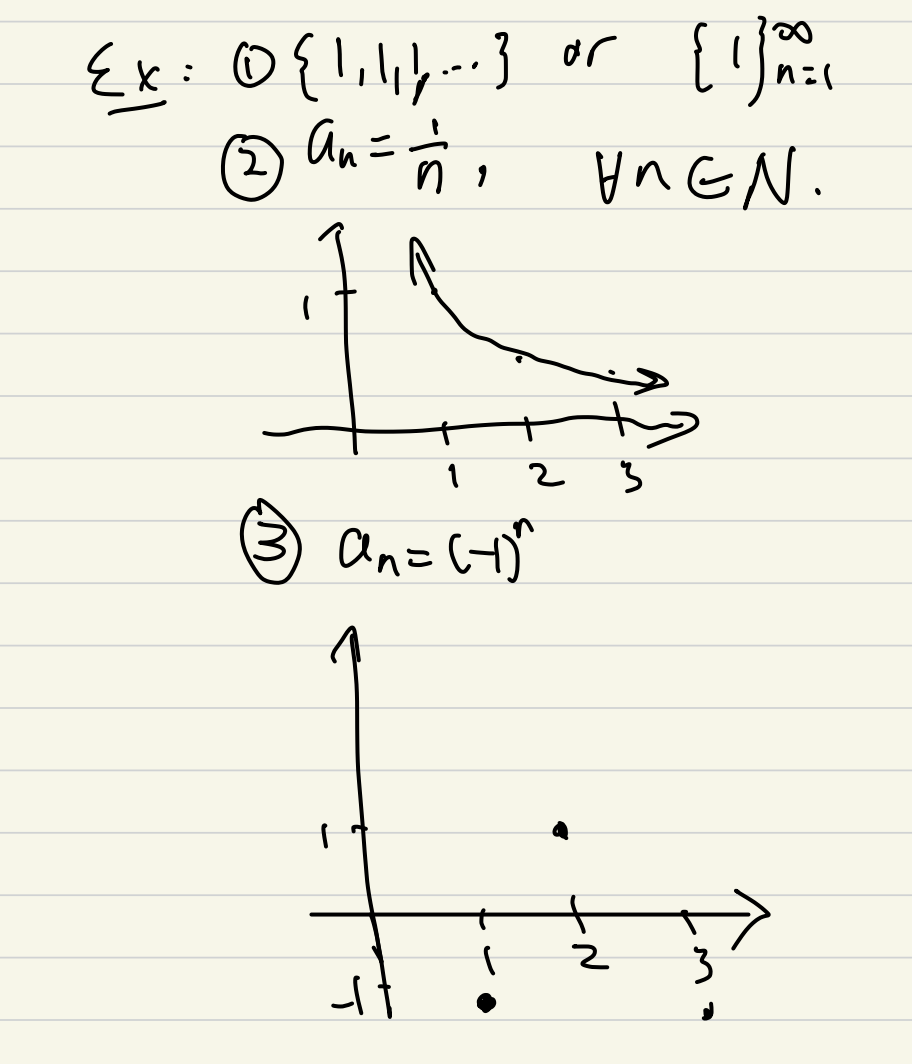 Ex: ① {1,1,1,...} or {1}_{n=1}^∞
② a_n = 1/n , ∀n∈N.
1
1 2 3
③ a_n = (-1)^n
1
1 2 3
-1